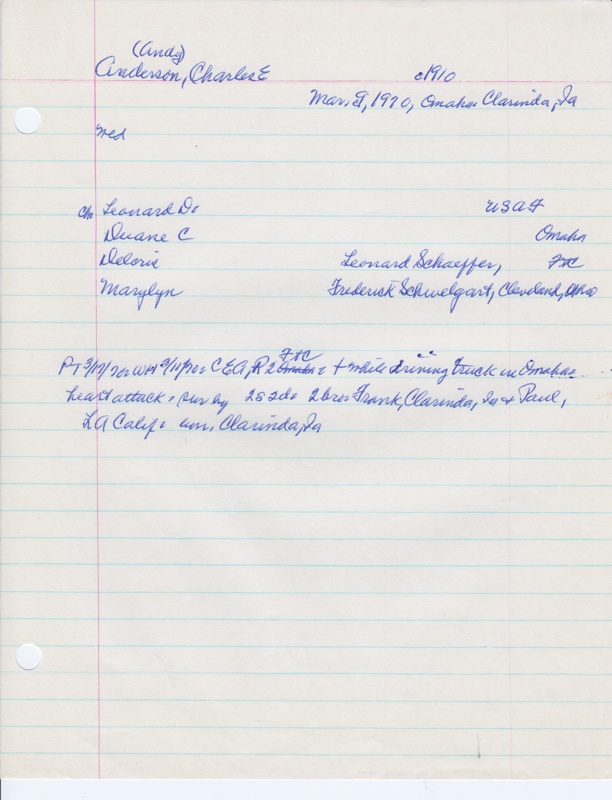 (Andy)
Anderson, Charles E c1910
Mar. 9, 1970, Omaha Clarinda, Ia
med
ch Leonard D. USAF
Duane C Omaha
Delorie Leonard Schaeffer, FtC
Marylyn Frederick Schwelgart, Cleveland, Ohio
PT 3/17/70 WH 3/11/70 CEA, R 2 FtC + while driving truck in Omaha.
heart attack. sur by 2s 2d. 2 bros Frank, Clarinda, Ia + Paul,
LA Calif. Clarinda, Ia